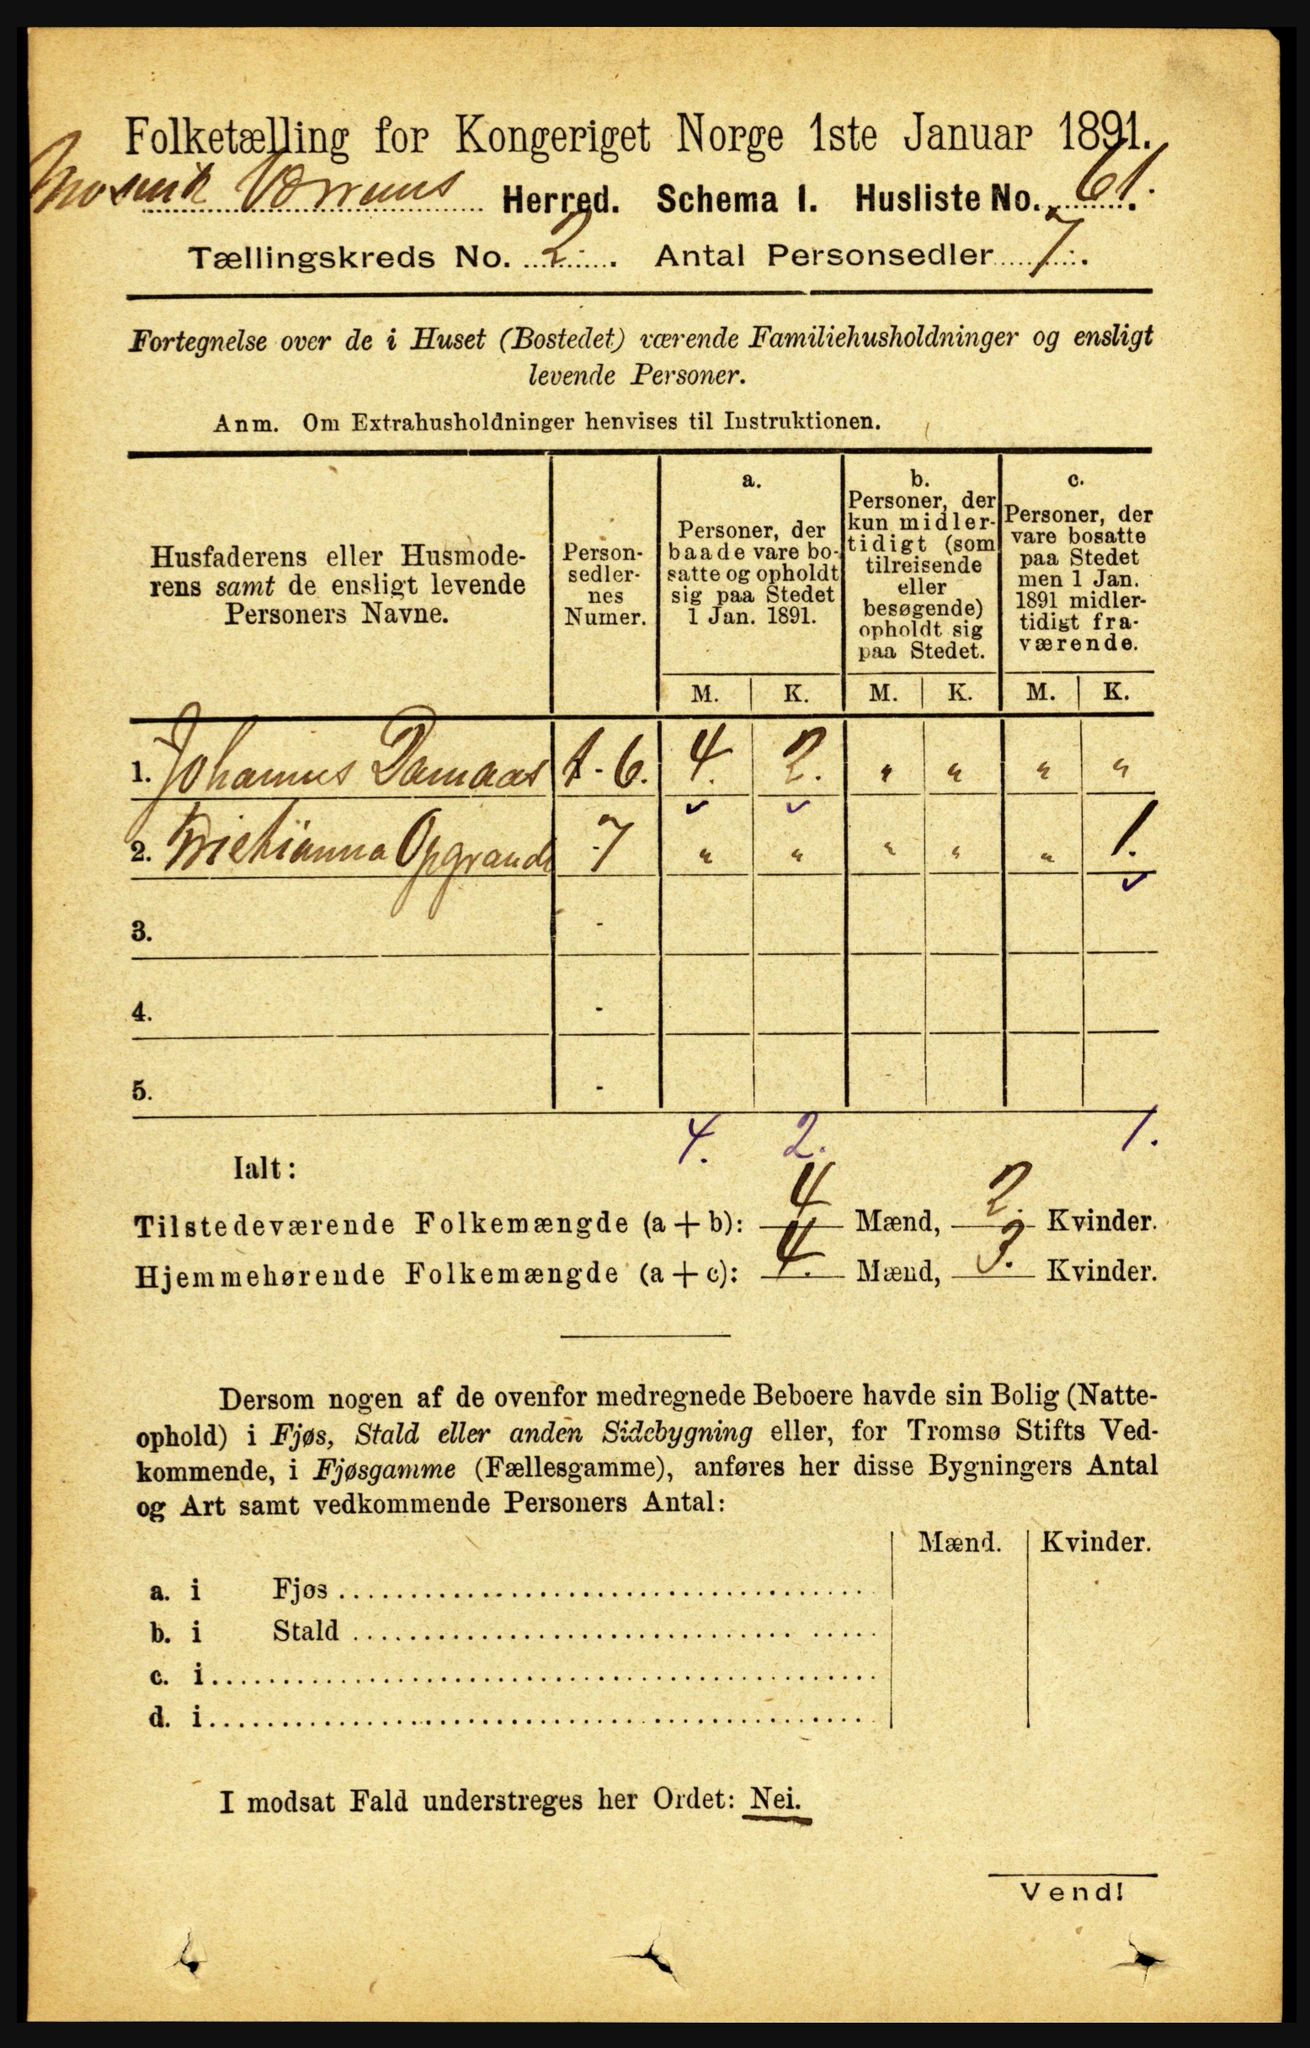 Folketælling for Kongeriget Norge 1ste Januar 1891.
Mosvik Værrans Herred. Schema I. Husliste No. 61.
Tællingskreds No. 2. Antal Personsedler 7.
Fortegnelse over de i Huset (Bostedet) værende Familiehusholdninger og ensligt
levende Personer.
Anm. Om Extrahusholdninger henvises til Instruktionen.
Husfaderens eller Husmode-
rens samt de ensligt levende
Personers Navne.
Person-
sedler-
nes
Numer.
a.
Personer, der
baade vare bo-
satte og opholdt
sig paa Stedet
1 Jan. 1891.
b.
Personer, der
kun midler-
tidigt (som
tilreisende
eller
besøgende)
opholdt sig
paa Stedet.
c.
Personer, der
vare bosatte
paa Stedet
men 1 Jan.
1891 midler-
tidigt fra-
værende.
M. K. M. K. M. K.
1. Johannes Damaas 1-6. 4. 2. " " " "
2. Opgrande 7 " " " " " 1.
3. -
4. -
5. -
4. 2. 1.
Ialt:
Tilstedeværende Folkemængde (a + b): 4 Mænd, 2. Kvinder.
Hjemmehørende Folkemængde (a + c): 4. Mænd, 3. Kvinder.
Dersom nogen af de ovenfor medregnede Beboere havde sin Bolig (Natte-
ophold) i Fjøs, Stald eller anden Sidebygning eller, for Tromsø Stifts Ved-
kommende, i Fjøsgamme (Fællesgamme), anføres her disse Bygningers Antal
og Art samt vedkommende Personers Antal:
Mænd. Kvinder.
a. i Fjøs
b. i Stald
c. i
d. i
I modsat Fald understreges her Ordet: Nei.
Vend!